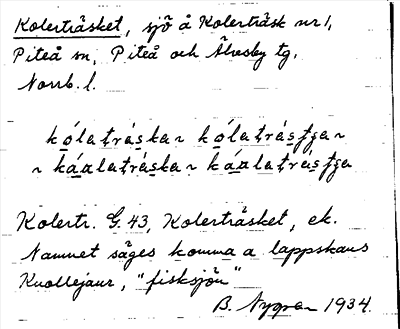 Kolerträsket, sjö å Kolerträsk nr 1,
Piteå sn, Piteå och Älvsby tg,
Norrb. l.
kólatráska ~ kólatrásʃga ~
~ káalatráska ~ káalatrásʃga
Kolertr. G. 43, Kolerträsket, ek.
Namnet säges komma a lappskans
Kuollejaur, "fisksjön"
B. Nygren 1934.